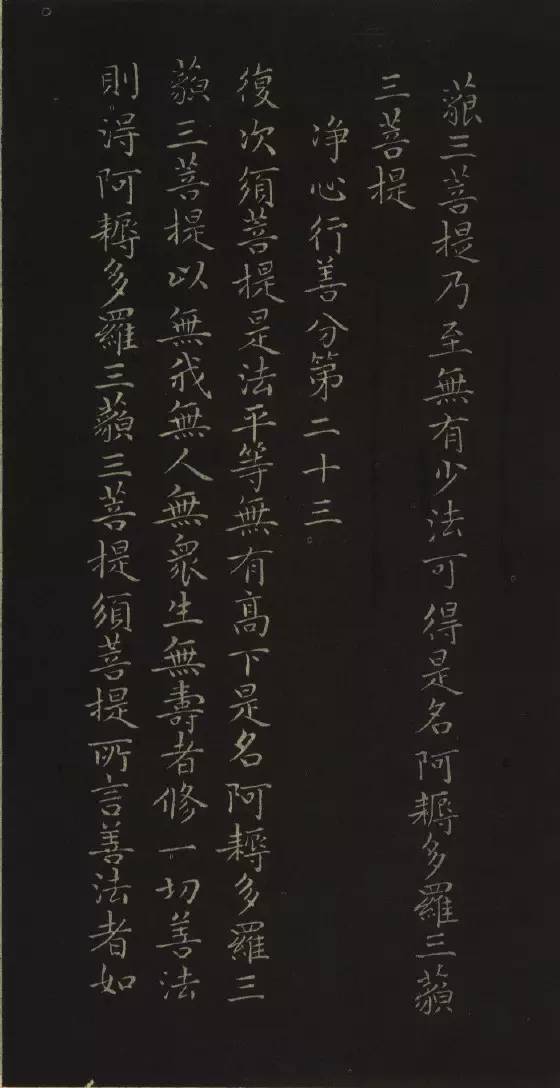 藐三菩提乃至無有少法可得是名阿耨多羅三藐
三菩提
净心行善分第二十三
復次須菩提是法平等無有高下是名阿耨多羅三
藐三菩提以無我無人無衆生無壽者修一切善法
則得阿耨多羅三藐三菩提須菩提所言善法者如